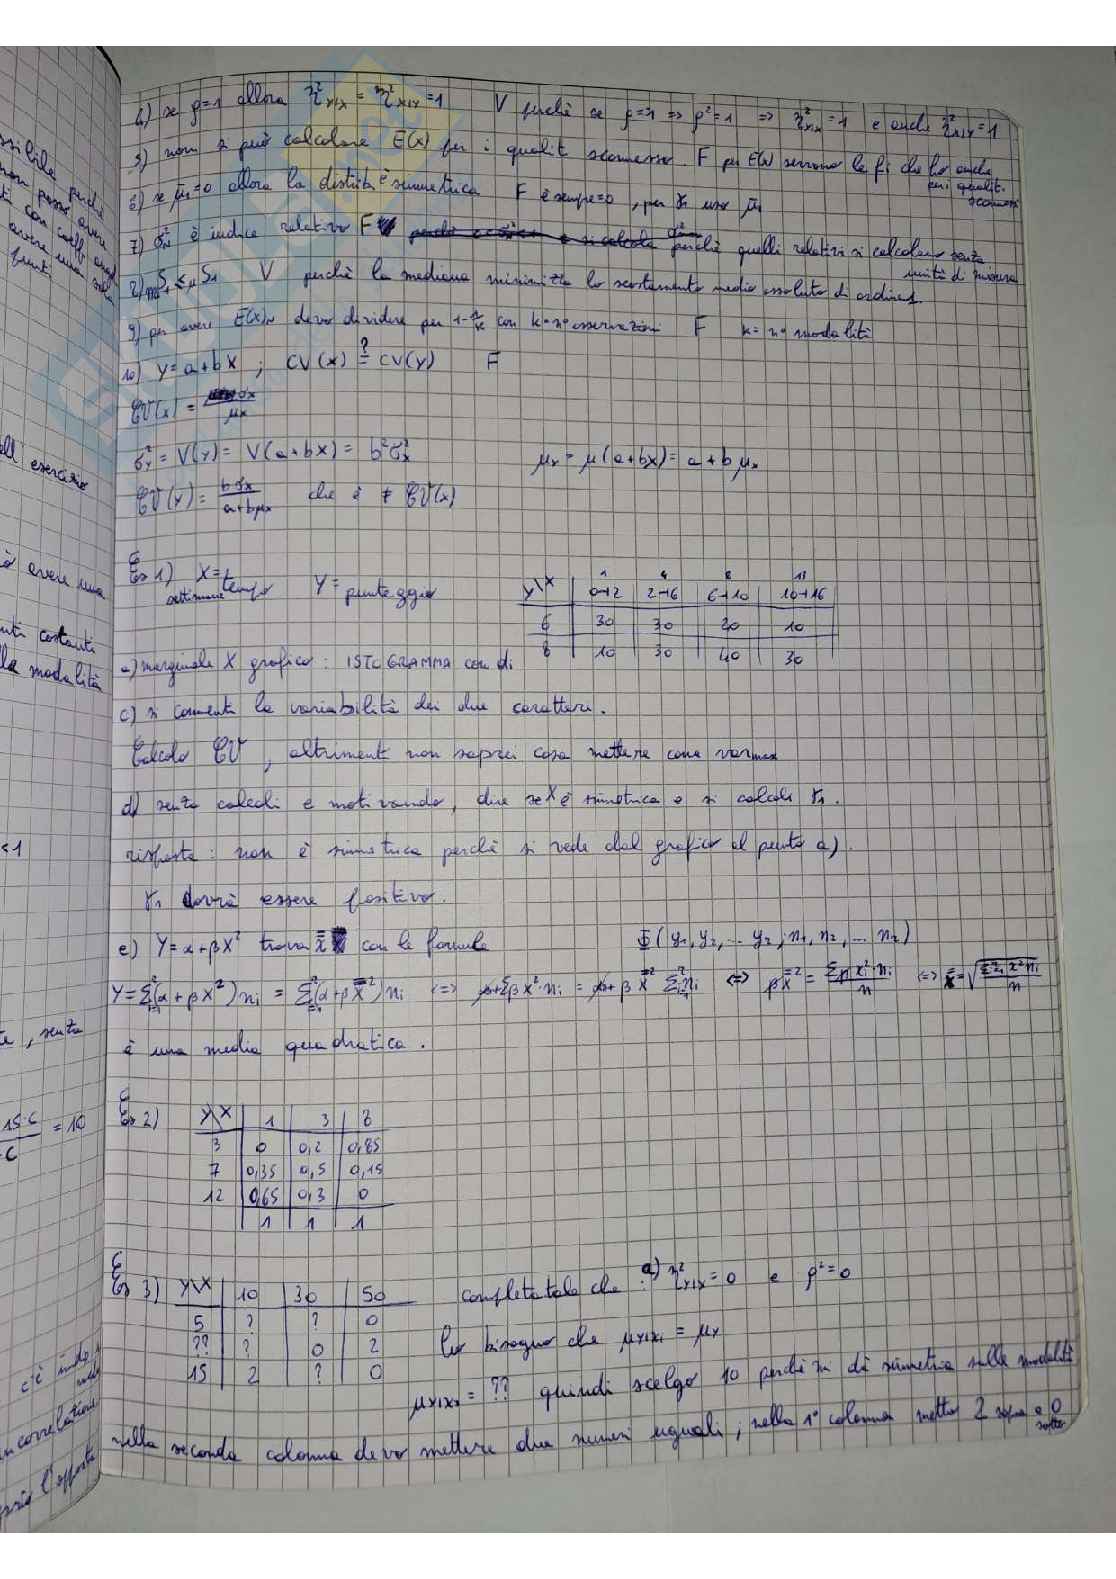 4) se ρ=1 allora η²Y|X = η²X|Y = 1 V perchè se ρ=1 => ρ²=1 => η²Y|X = 1 e anche η²X|Y = 1
5) non si può calcolare E(x) per i qualit sconnesso. F per E(x) servono le fi che ho anche
per i qualit.
sconnessi
6) se μ̄1=0 allora la distrib è simmetrica F è sempre=0, per γ uso μ̄
7) è indice relativo F perchè quelli relativi si calcolano senza
unità di misura
8) S1 ≤ μS1 V perchè la mediana minimizza lo scostamento medio assoluto di ordine 1.
9) per avere E(x)N devo dividere per con k=n° osservazioni F k= n° modalità
10) Y=a+bX ; CV(x) ?= CV(y) F
CV(x) = σx/μx
σ²Y = V(Y) = V(a+bX) = b²σ²x μY = μ(a+bX) = a+bμx
CV(Y) = bσx/(a+bμx) che è ≠ CV(x)
Es 1) X= tempo Y= punteggio
settimane
Y\X | 0⊣2 | 2⊣6 | 6⊣10 | 10⊣16
6 | 30 | 30 | 20 | 10
8 | 10 | 30 | 40 | 30
a) marginale X grafico: ISTOGRAMMA con di
c) si commenti la variabilità dei due caratteri.
Calcolo CV, altrimenti non saprei cosa mettere come varmax
d) senza calcoli e motivando, dire se X è simmetrica e si calcoli γ1.
risposta: non è simmetrica perchè si vede dal grafico al punto a).
γ1 dovrà essere positivo.
e) Y=α+βX² trova x̿ con la formula Φ(y1,y2,... y2;n1,n2,... n2)
Y=Σ(α+βX²)ni = Σ(α+βX̿²)ni <=> α+Σβx²·ni = α+βX̿² Σni <=> βX̿² = Σβxi²·ni/n <=> x̿=√(Σx²ni/n)
è una media quadratica.
Es 2)
Y\X | 1 | 3 | 8
3 | 0 | 0,2 | 0,85
7 | 0,35 | 0,5 | 0,15
12 | 0,65 | 0,3 | 0
1 | 1 | 1
Es 3)
Y\X | 10 | 30 | 50
5 | ? | ? | 0
?? | ? | 0 | 2
15 | 2 | ? | 0
completa tale che : a) η²Y|X=0 e ρ²=0
ho bisogno che μY|xi = μY
μY|x3 = ?? quindi scelgo 10 perchè mi dà simmetria sulle modalità
nella seconda colonna devo mettere due numeri uguali, nella 1° colonna metto 2 sopra e 0
sotto
all esercizio
<1
15·6
= 10
c'è indip
correlazione
l'opposto